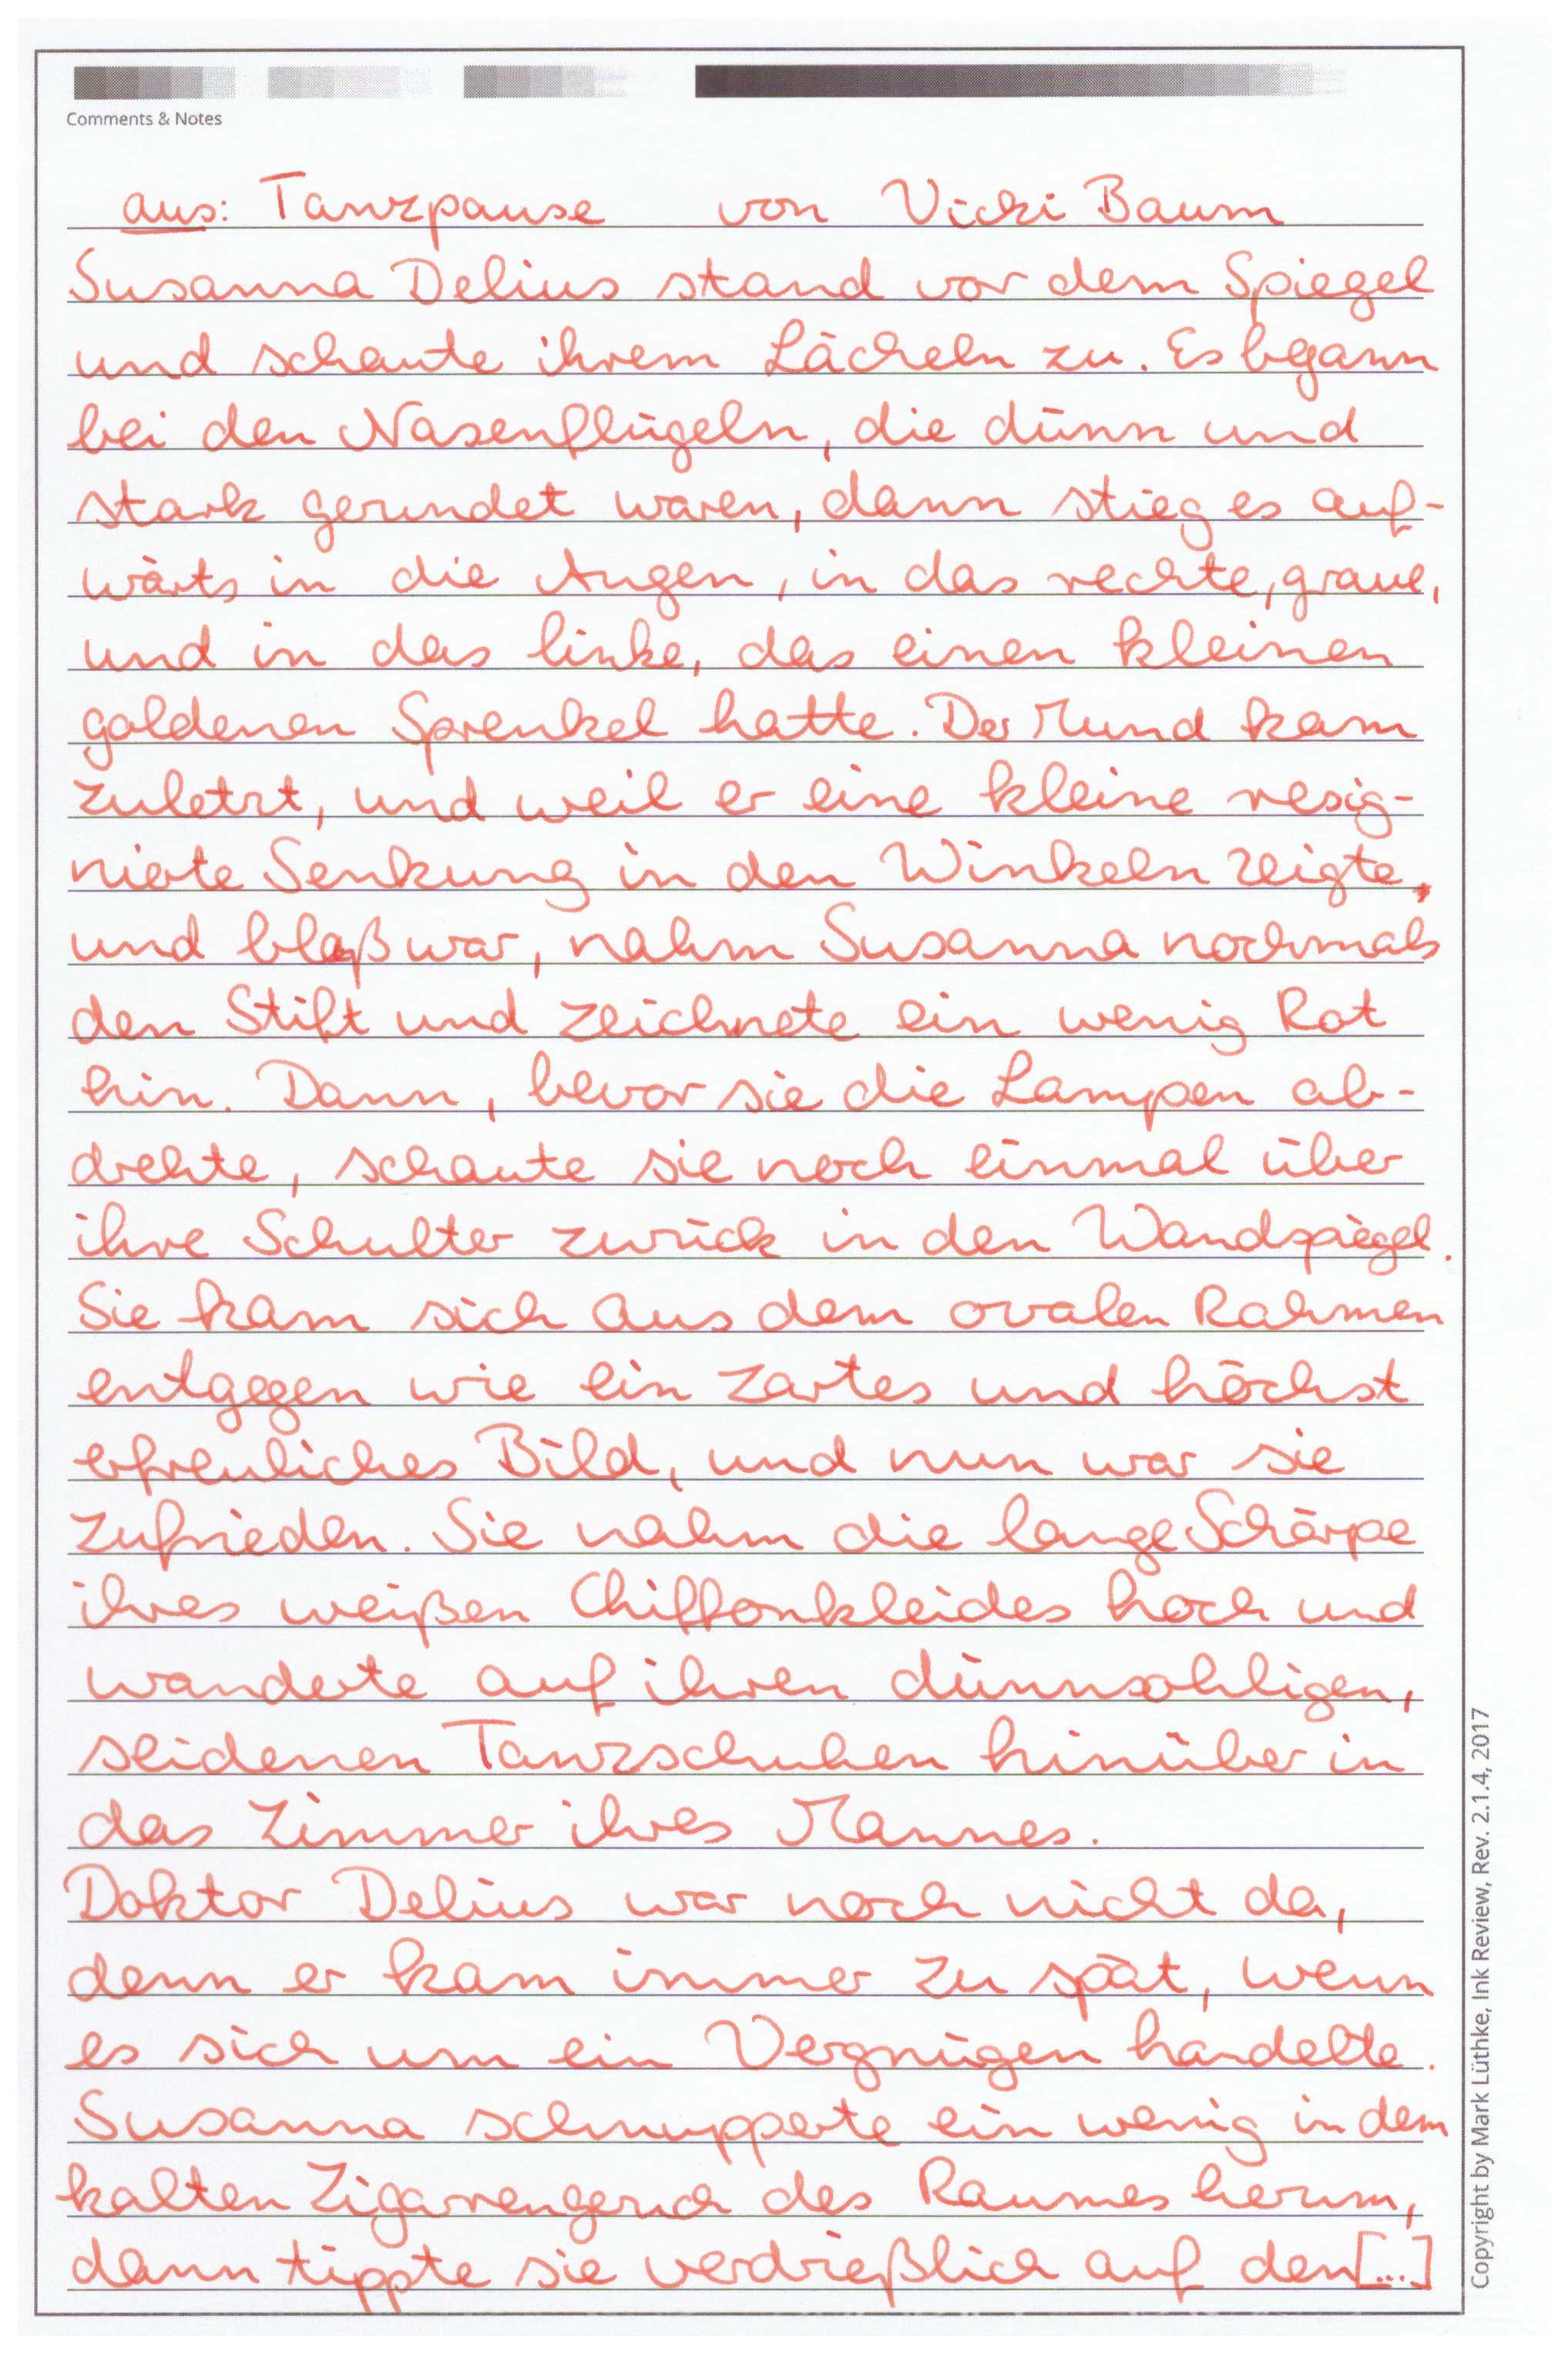 Comments & Notes
aus: Tanzpause von Vicki Baum
Susanna Delius stand vor dem Spiegel
und schaute ihrem Lächeln zu. Es begann
bei den Nasenflügeln, die dünn und
stark gerundet waren, dann stieg es auf-
wärts in die Augen, in das rechte, graue,
und in das linke, das einen kleinen
goldenen Sprenkel hatte. Der Mund kam
zuletzt, und weil er eine kleine resig-
nierte Senkung in den Winkeln zeigte,
und blaß war, nahm Susanna nochmals
den Stift und zeichnete ein wenig Rot
hin. Dann, bevor sie die Lampen ab-
drehte, schaute sie noch einmal über
ihre Schulter zurück in den Wandspiegel.
Sie kam sich aus dem ovalen Rahmen
entgegen wie ein zartes und höchst
erfreuliches Bild, und nun war sie
zufrieden. Sie nahm die lange Schärpe
ihres weißen Chiffonkleides hoch und
wanderte auf ihren dünnsohligen,
seidenen Tanzschuhen hinüber in
das Zimmer ihres Mannes.
Doktor Delius war noch nicht da,
denn er kam immer zu spät, wenn
es sich um ein Vergnügen handelte.
Susanna schnupperte ein wenig in dem
kalten Zigarrengeruch des Raumes herum,
dann tippte sie verdrießlich auf den [...]
Copyright by Mark Lüthke, Ink Review, Rev. 2.1.4, 2017